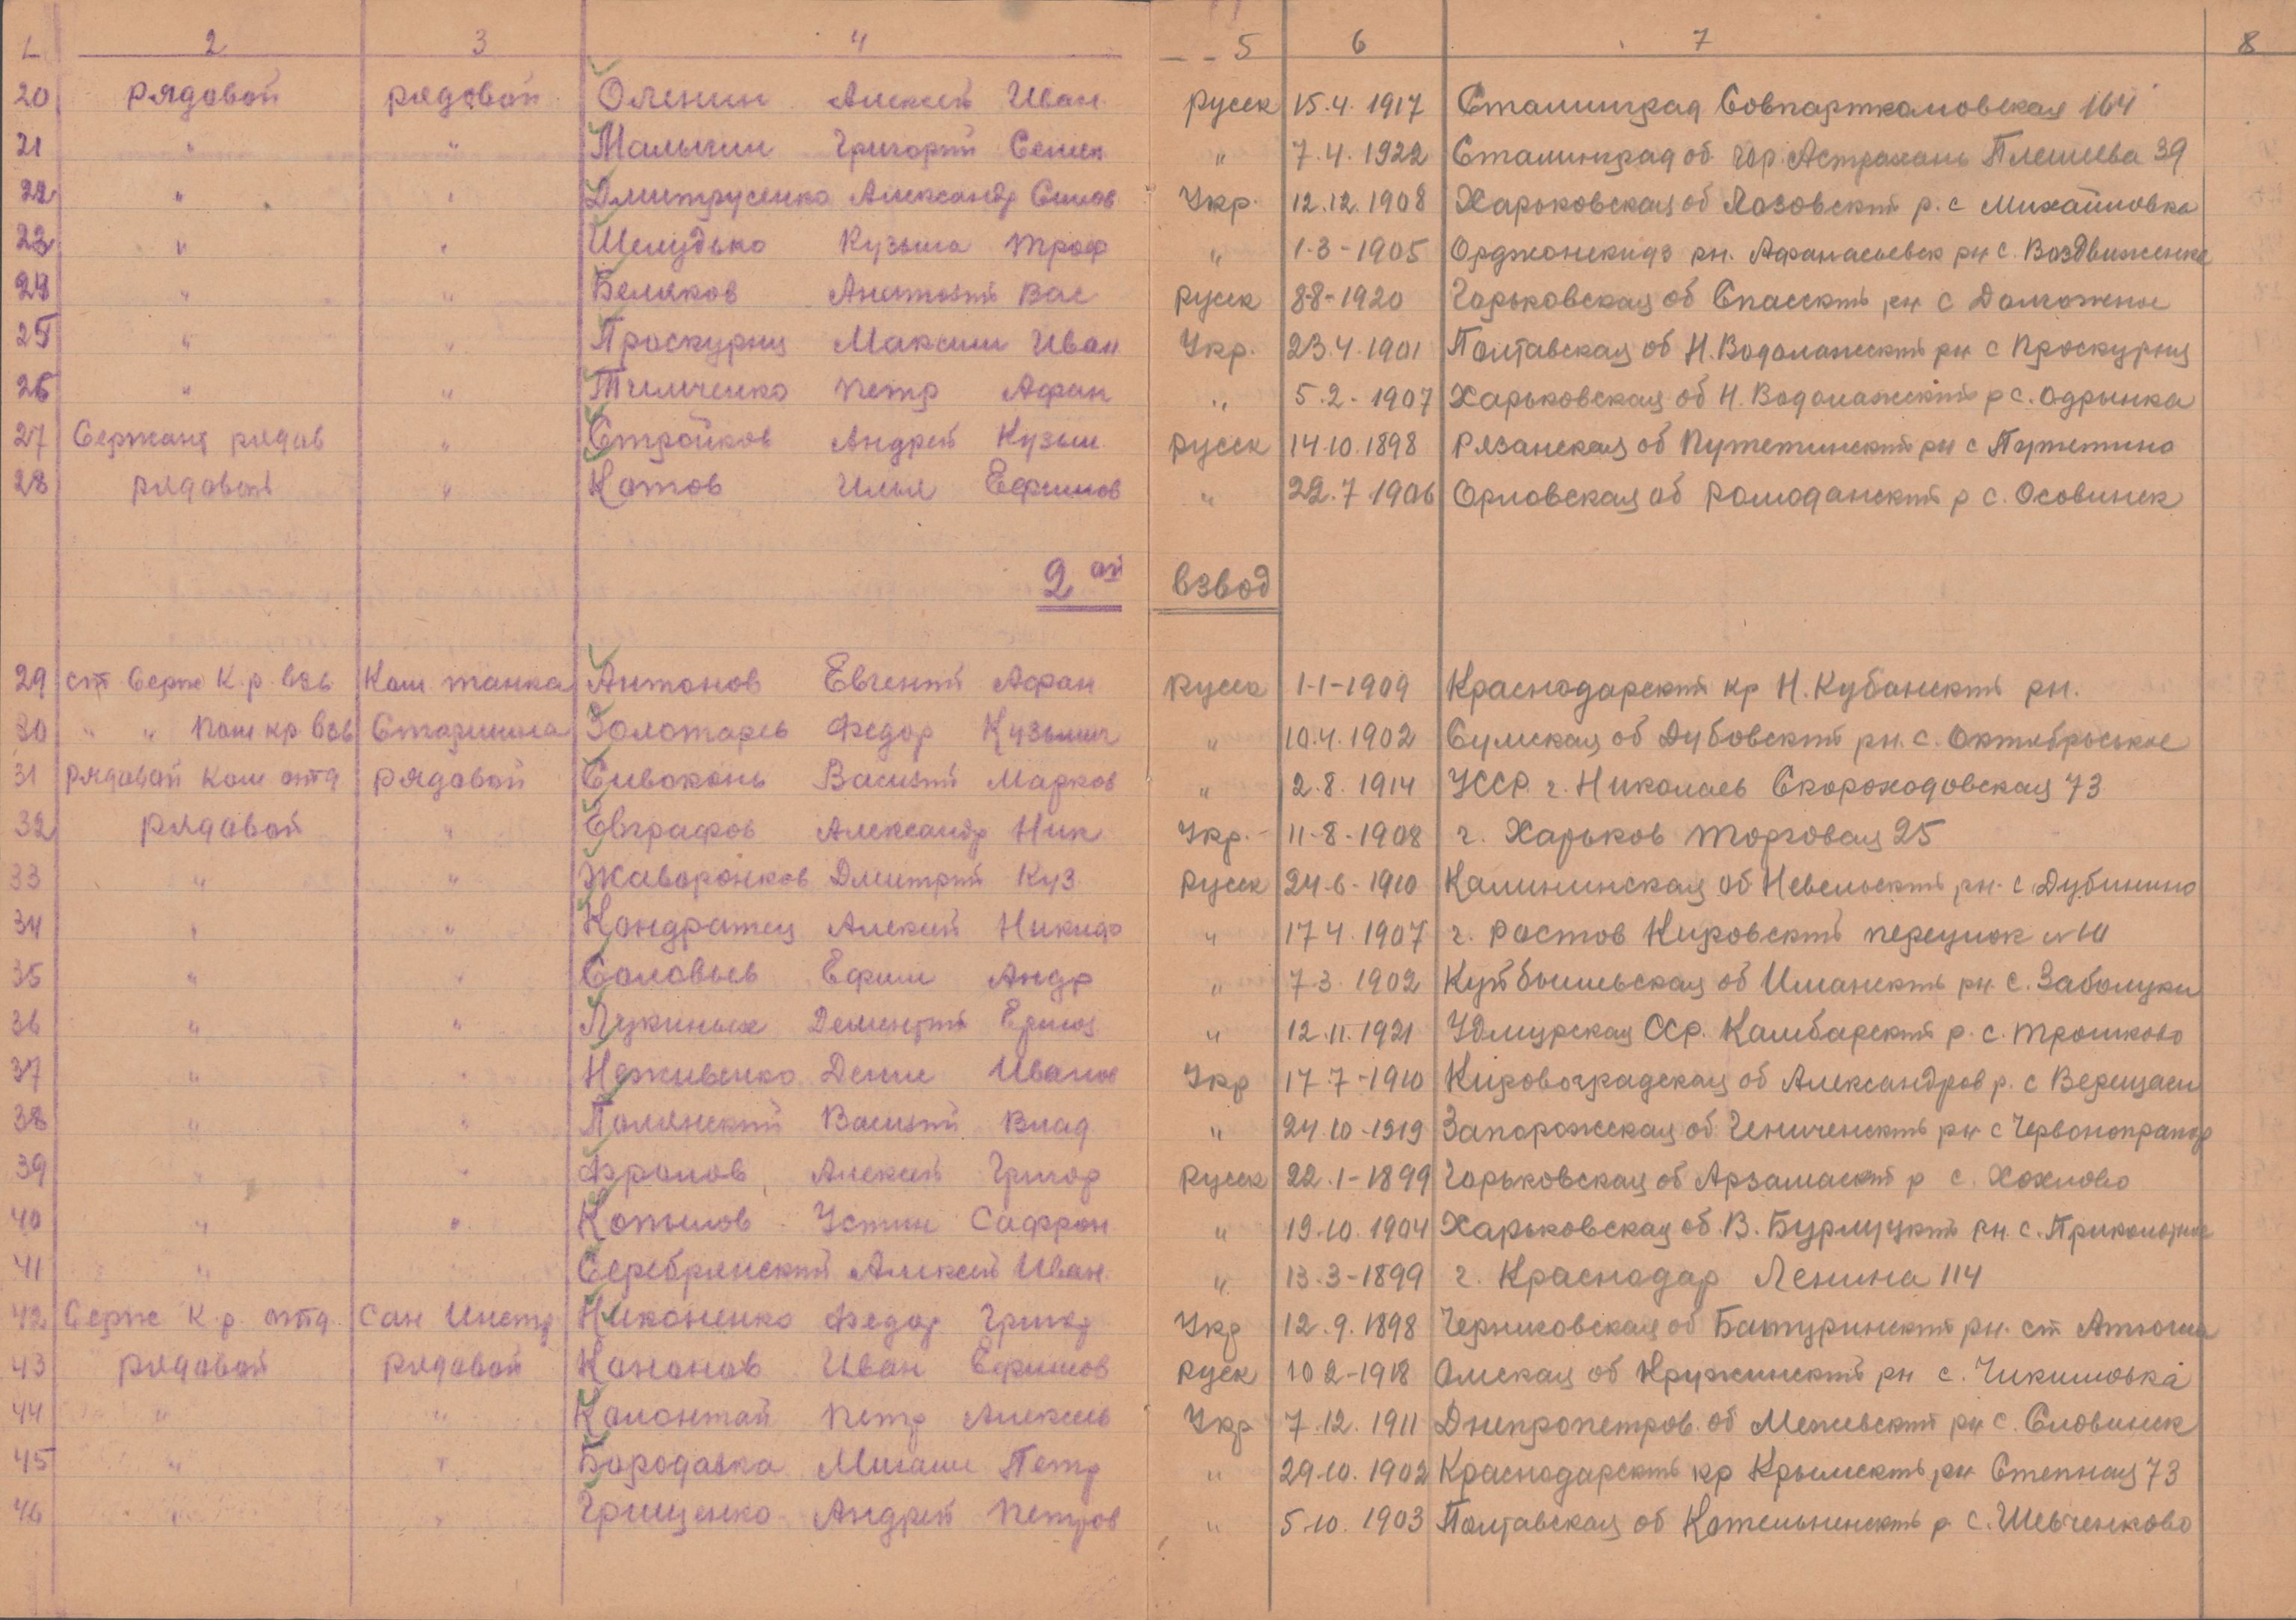 1 2 3 4 5 6 7 8
20 рядовой рядовой Оленин Алексей Иван русск 15.4.1917 Сталинград Совпарткомовская 164
21 " " Малыгин Григорий Семен " 7.4.1922 Сталинград об. гор. Астрахань Плещеева 39
22 " " Дмитрусенко Александр Силов Укр. 12.12.1908 Харьковская об Лозовский р. с Михайловка
23 " " Шелудько Кузьма Троф " 1-3-1905 Орджоникидз рн. Афанасьевск рн с. Воздвиженка
24 " " Беляков Анатолий Вас русск 8-8-1920 Горьковская об Спасский рн с
25 " " Проскурня Максим Иван Укр. 23.4.1901 Полтавская об Н.Водолажский рн с Проскурня
26 " " Тимченко Петр Афан " 5.2-1907 Харьковская об Н.Водолажский р с. Одрынка
27 Сержант рядов " Стройков Андрей Кузьм русск 14.10.1898 Рязанская об Путятинский рн с Путятино
28 рядовой " Котов Илья Ефимов " 22.7.1906 Орловская об Ромоданский р с.
2ой взвод
29 ст Серж К.р. взв Ком танка Антонов Евгений Афан Русск 1-1-1909 Краснодарский кр Н.Кубанский рн.
30 " " Пом кр взв Старшина Золотарев Федор Кузьмич " 10.4.1902 Сумская об Дубовский рн. с. Октябрьское
31 рядовой Ком отд рядовой Сивоконь Василий Марков " 2.8.1914 УССР г. Николаев Скороходовская 73
32 рядовой " Евграфов Александр Ник Укр. 11-8-1908 г. Харьков Торговая 25
33 " " Жаворонков Дмитрий Куз Русск 24-6-1910 Калининская об Невельский рн. с Дубинино
34 " " Кондратец Алексей Никиф " 17.4.1907 г. Ростов Кировский переулок № 10
35 " " Соловьев Ефим Андр " 7-3.1902 Куйбышевская об рн. с.
36 " " Лукиных Дементий " 12.11.1921 Удмурская ССР. Камбарский р. с. Трошково
37 " " Неживенко Денис Иванов Укр 17.7-1910 Кировоградская об Александров р. с Верещаги
38 " " Полянский Василий Влад " 24.10-1919 Запорожская об Геническ рн с Червонопрапор
39 " " Фролов Алексей Григор Русск 22.1-1899 Горьковская об Арзамаский р с. Хохлово
40 " " Копылов Устин Сафрон " 19.10.1904 Харьковская об. В. Бурлуцкий рн. с. Приколотное
41 " " Серебрянский Алексей Иван " 13-3-1899 г. Краснодар Ленина 114
42 Серж К.р. отд. Сан Инстр Никоненко Федор Григор Укр 12.9.1898 Черниковская об Батуринский рн. ст
43 рядовой рядовой Кононов Иван Ефимов Руск 10 2-1918 Омская об рн с. Чикишовка
44 " " Колонтай Петр Алексеев Укр 7.12.1911 Днепропетров. об Межевский рн с.
45 " " Бородавка Михаил Петр " 29.10.1902 Краснодарский кр Крымский рн Степная 73
46 " " Грищенко Андрей Петров " 5.10.1903 Полтавская об р с. Шевченково